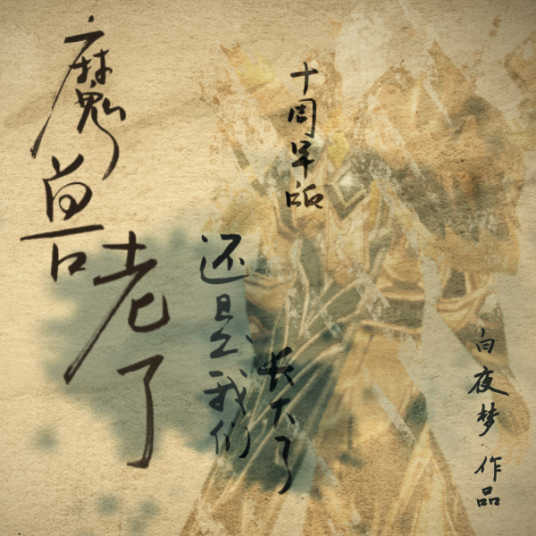 魔兽老了
还是我们
长大了
十周年版
白夜梦·作品